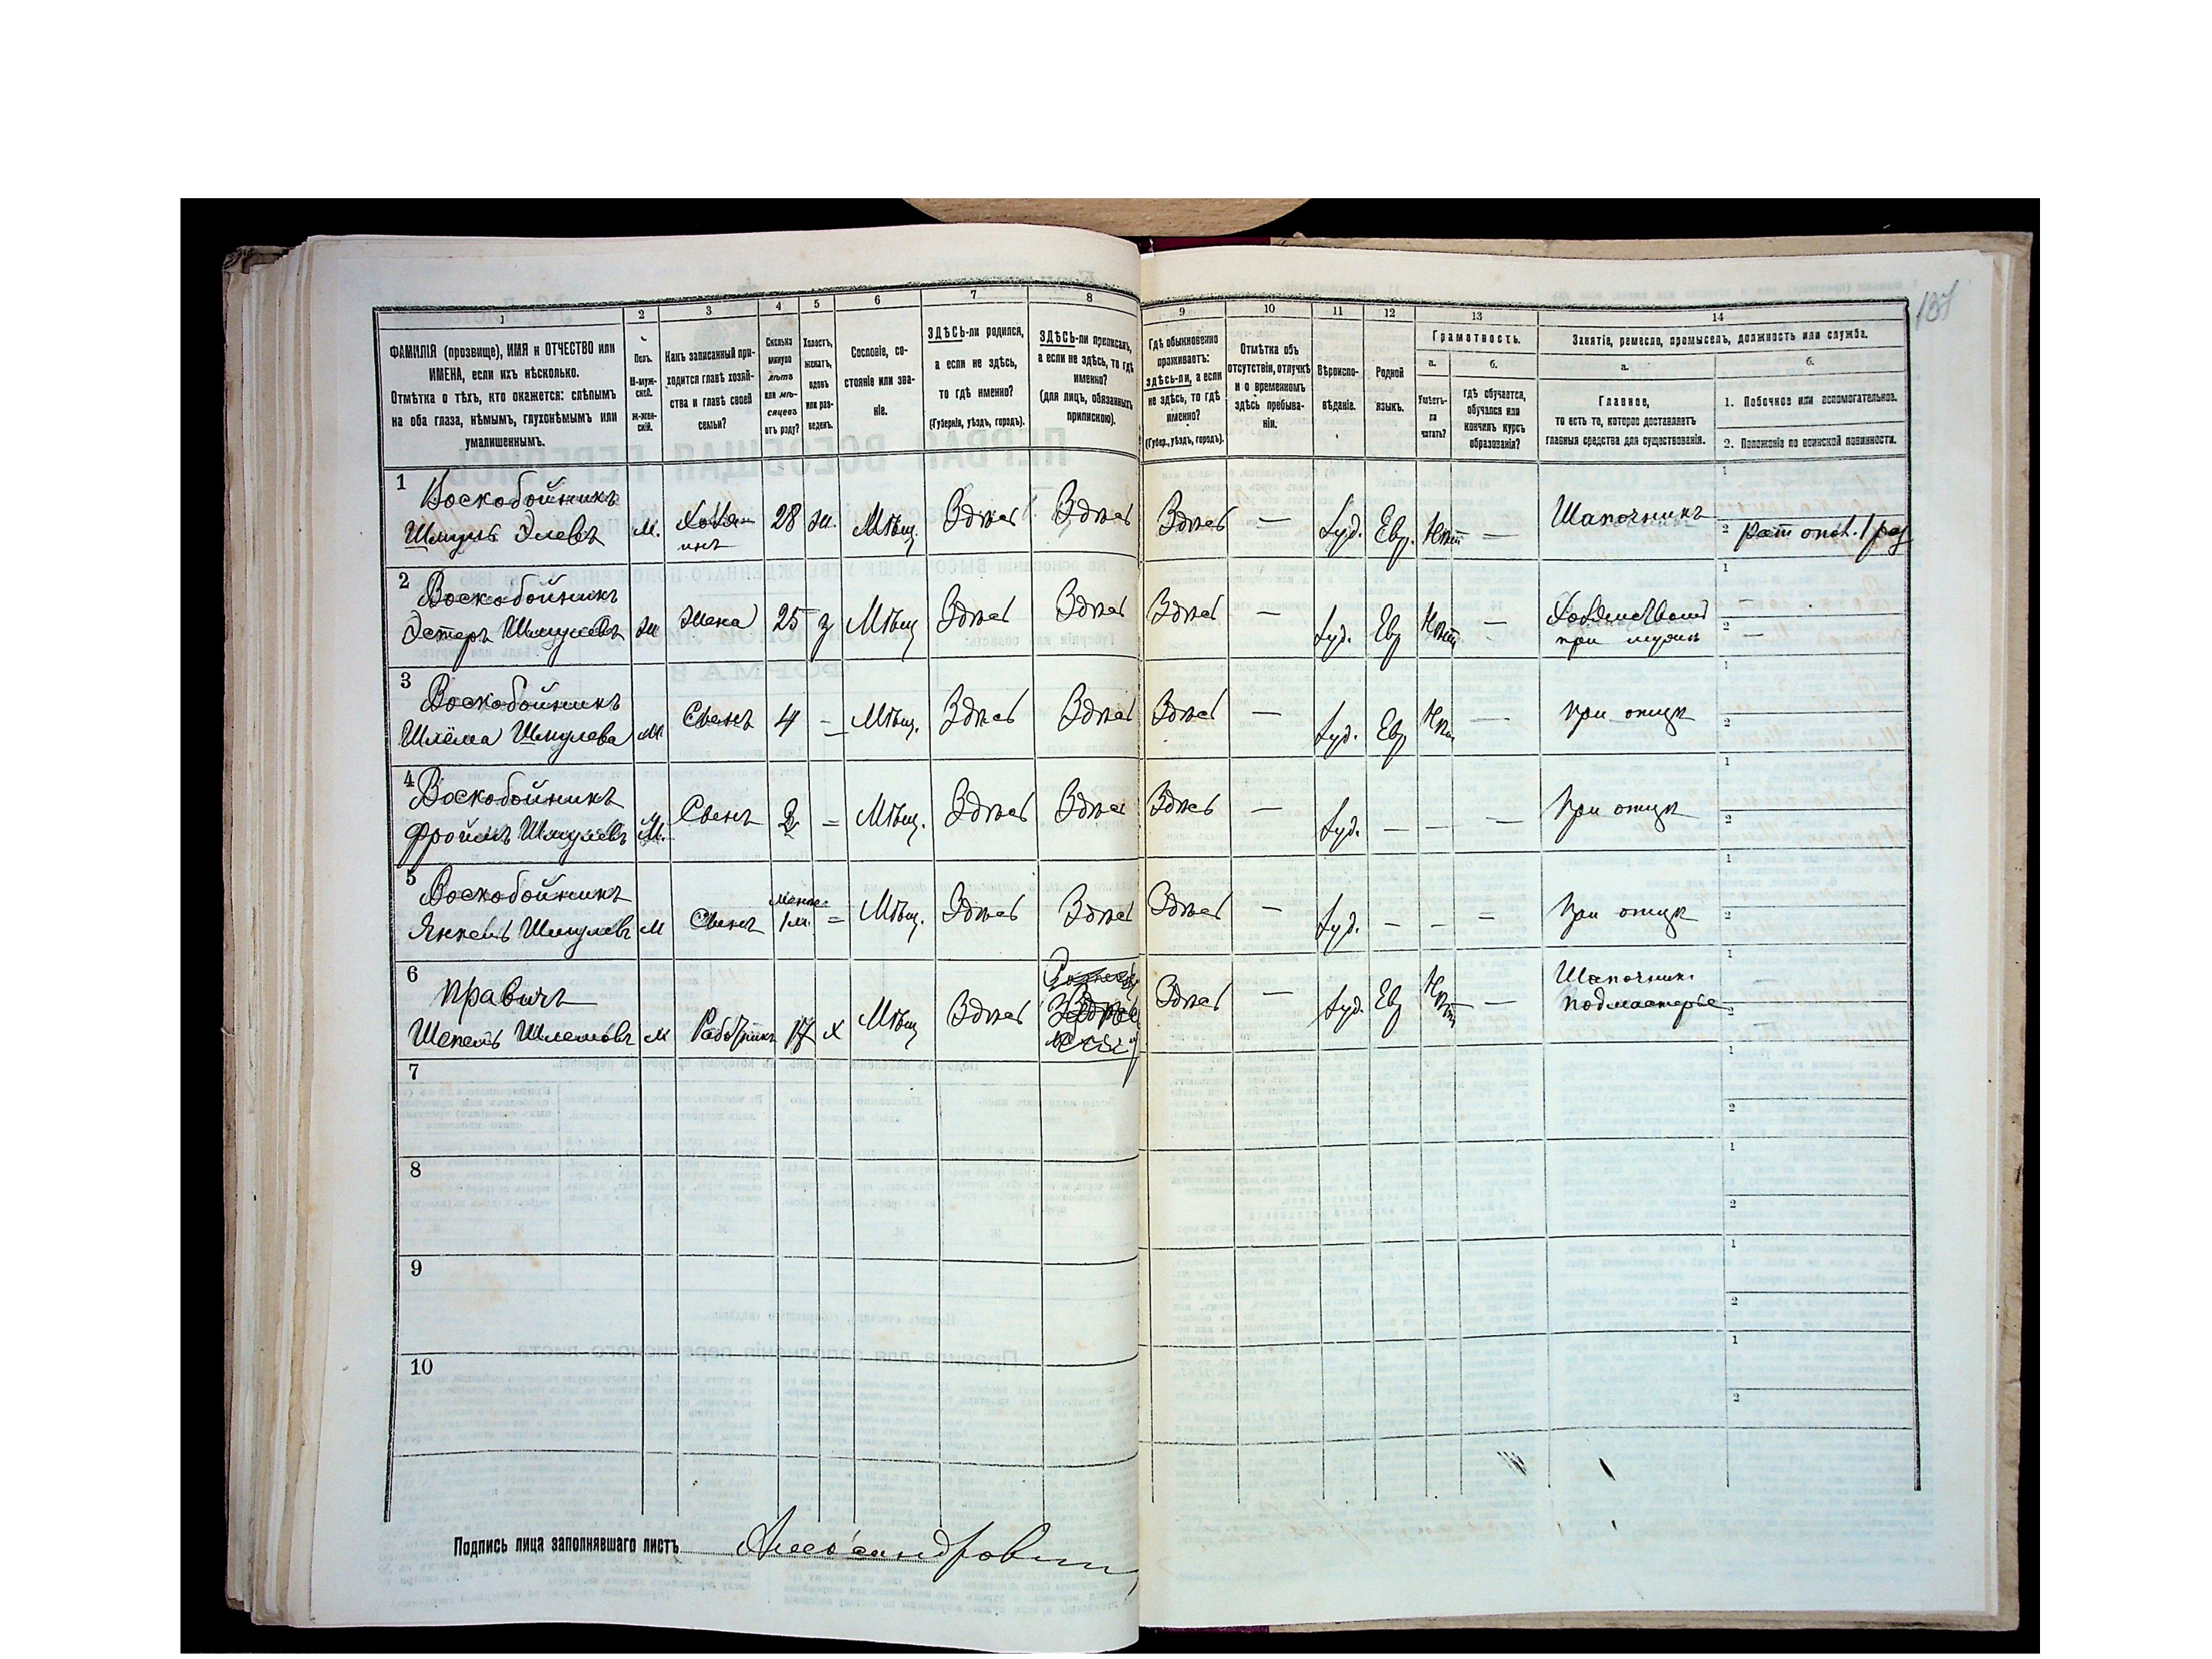 137
1 2 3 4 5 6 7 8 9 10 11 12 13 14
ФАМИЛІЯ (прозвище), ИМЯ и ОТЧЕСТВО или
ИМЕНА, если ихъ нѣсколько.
Отмѣтка о тѣхъ, кто окажется: слѣпымъ
на оба глаза, нѣмымъ, глухонѣмымъ или
умалишеннымъ.
Полъ.
М-муж-
ской.
Ж-жен-
скій.
Какъ записанный при-
ходится главѣ хозяй-
ства и главѣ своей
семьи?
Сколько
минуло
лѣтъ
или мѣ-
сяцевъ
отъ роду?
Холостъ,
женатъ,
вдовъ
или раз-
веденъ.
Сословіе, со-
стояніе или зва-
ніе.
ЗДѢСЬ-ли родился,
а если не здѣсь,
то гдѣ именно?
(Губернія, уѣздъ, городъ).
ЗДѢСЬ-ли приписанъ,
а если не здѣсь, то гдѣ
именно?
(для лицъ, обязанныхъ
припискою).
Гдѣ обыкновенно
проживаетъ:
здѣсь-ли, а если
не здѣсь, то гдѣ
именно?
(Губер., уѣздъ, городъ).
Отмѣтка объ
отсутствіи, отлучкѣ
и о временномъ
здѣсь пребыва-
ніи.
Вѣроиспо-
вѣданіе.
Родной
языкъ.
Грамотность.
а.
Умѣетъ-
ли
читать?
б.
гдѣ обучается,
обучался или
кончилъ курсъ
образованія?
Занятіе, ремесло, промыселъ, должность или служба.
а.
Главное,
то есть то, которое доставляетъ
главныя средства для существованія.
б.
1. Побочное или вспомогательное.
2. Положеніе по воинской повинности.
1 Воскобойникъ
Шмуль Элевъ м. Хозя-
инъ 28 ж. Мѣщ. Здѣсь Здѣсь Здѣсь — Іуд. Евр. Нѣтъ — Шапочникъ
1
2 рат опол. 1 раз
2 Воскобойникъ
Эстеръ Шмулевъ ж Жена 25 з Мѣщ Здѣсь Здѣсь Здѣсь — Іуд. Евр Нѣтъ —
при мужѣ
1 —
2 —
3 Воскобойникъ
Шлёма Шмулева м. Сынъ 4 – Мѣщ. Здѣсь Здѣсь Здѣсь — Іуд. Евр Нѣт — при отцѣ
1
2
4 Воскобойникъ
Фроимъ Шмулевъ М. Сынъ 2 = Мѣщ. Здѣсь Здѣсь Здѣсь — Іуд. — — — при отцѣ
1
2
5 Воскобойникъ
Янкель Шмулевъ м Сынъ Менѣе
1 м. = Мѣщ. Здѣсь Здѣсь Здѣсь — Іуд. – – = при отцѣ
1
2
6 Правичъ
Шепель Шлемовъ м Работникъ 17 х Мѣщ Здѣсь Здѣсь — Іуд. Евр Нѣтъ — Шапочник.
подмастерье
1 —
2 —
7
1
2
8
1
2
9
1
2
10
1
2
Подпись лица заполнявшаго листъ Александрович